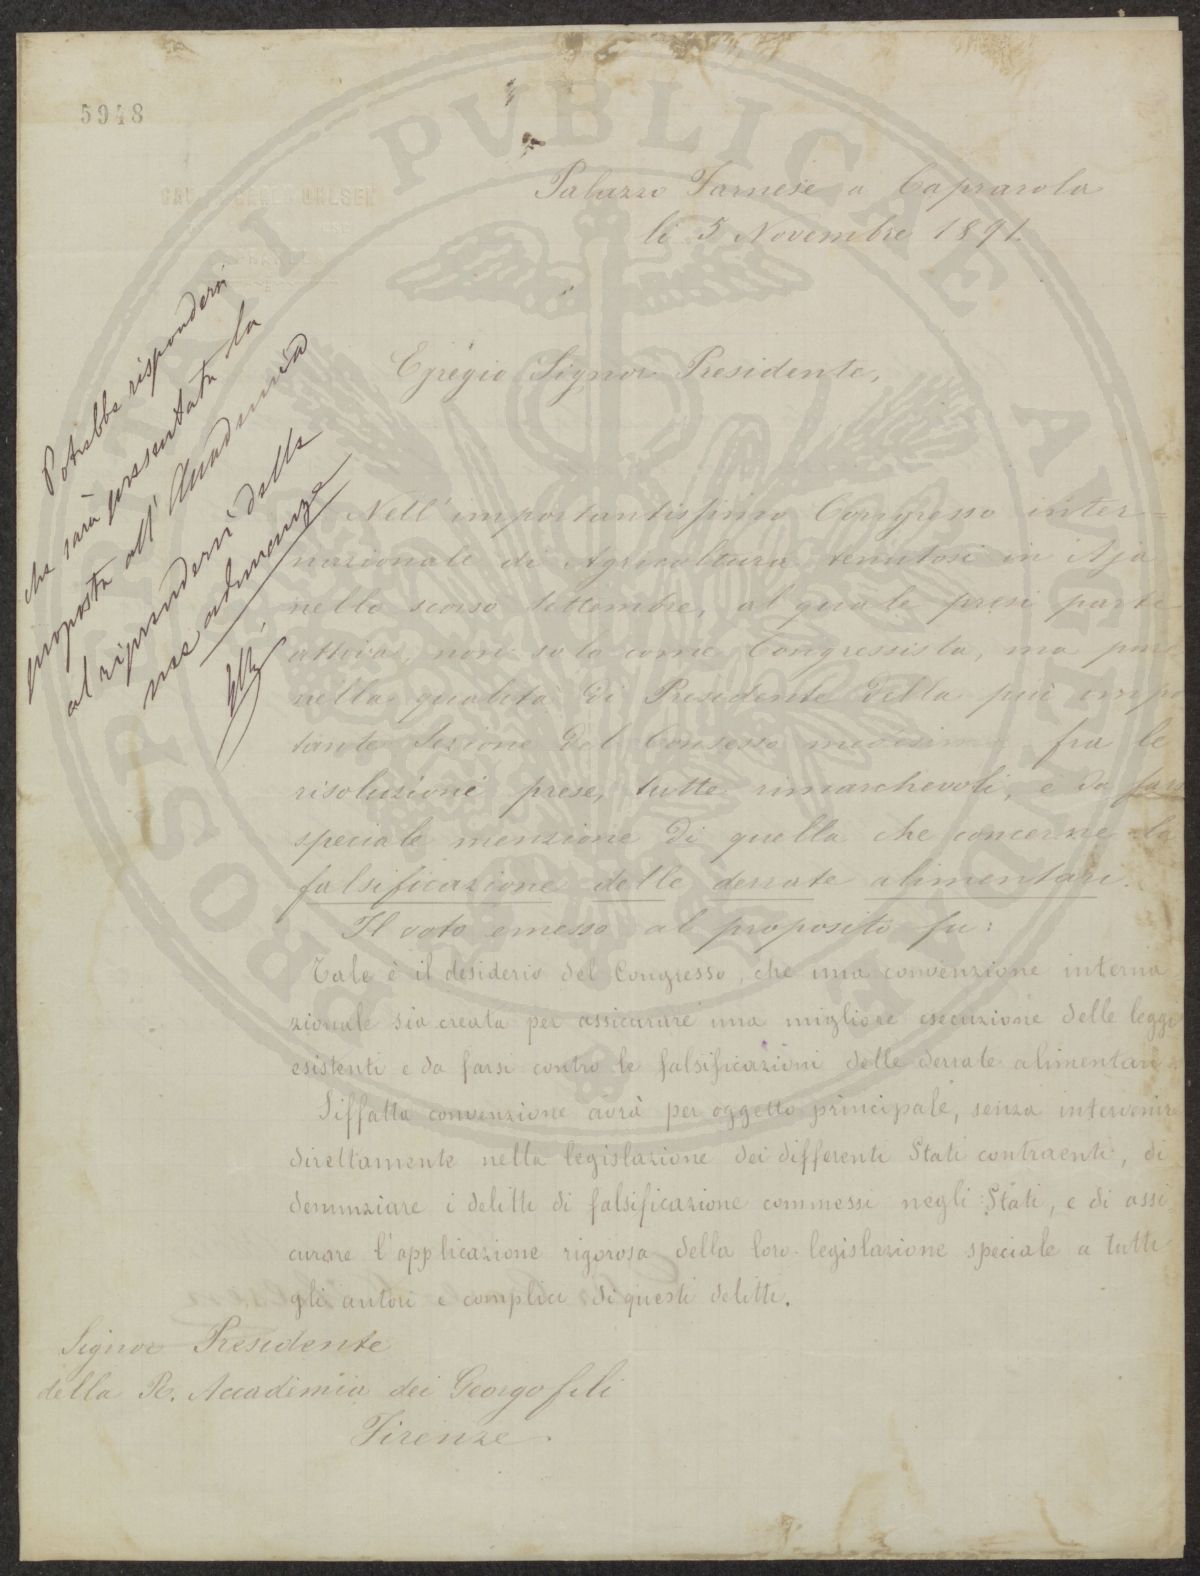 5948
OHLSEN
Palazzo Farnese a Caprarola
li 5 Novembre 1891.
Egregio Signor Presidente,
Potrebbe rispondersi
che sarà presentata la
proposta all'Accademia
al riprendersi delle
sue adunanze
Nell'importantissimo Congresso inter=
nazionale di Agricoltura tenutosi in Aja
nello scorso Settembre, al quale presi parte
attiva, non solo come Congressista, ma pure
nella qualità di Presidente della più impor
tante Sezione del Consesso medesimo, fra le
risoluzioni prese, tutte rimarchevoli, è da farsi
speciale menzione di quella che concerne la
falsificazione delle derrate alimentari.
Il voto emesso al proposito fu:
Tale è il desiderio del Congresso, che una convenzione interna
zionale sia creata per assicurare una migliore esecuzione delle leggi
esistenti e da farsi contro le falsificazioni delle derrate alimentari.
Siffatta convenzione avrà per oggetto principale, senza intervenire
direttamente nella legislazione dei differenti Stati contraenti, di
denunziare i delitti di falsificazione commessi negli Stati, e di assi
curare l'applicazione rigorosa della loro legislazione speciale a tutti
gli autori e complici di questi delitti.
Signor Presidente
della R. Accademia dei Georgofili
Firenze.
PROSPERITATI PVBLICAE AVGENDAE